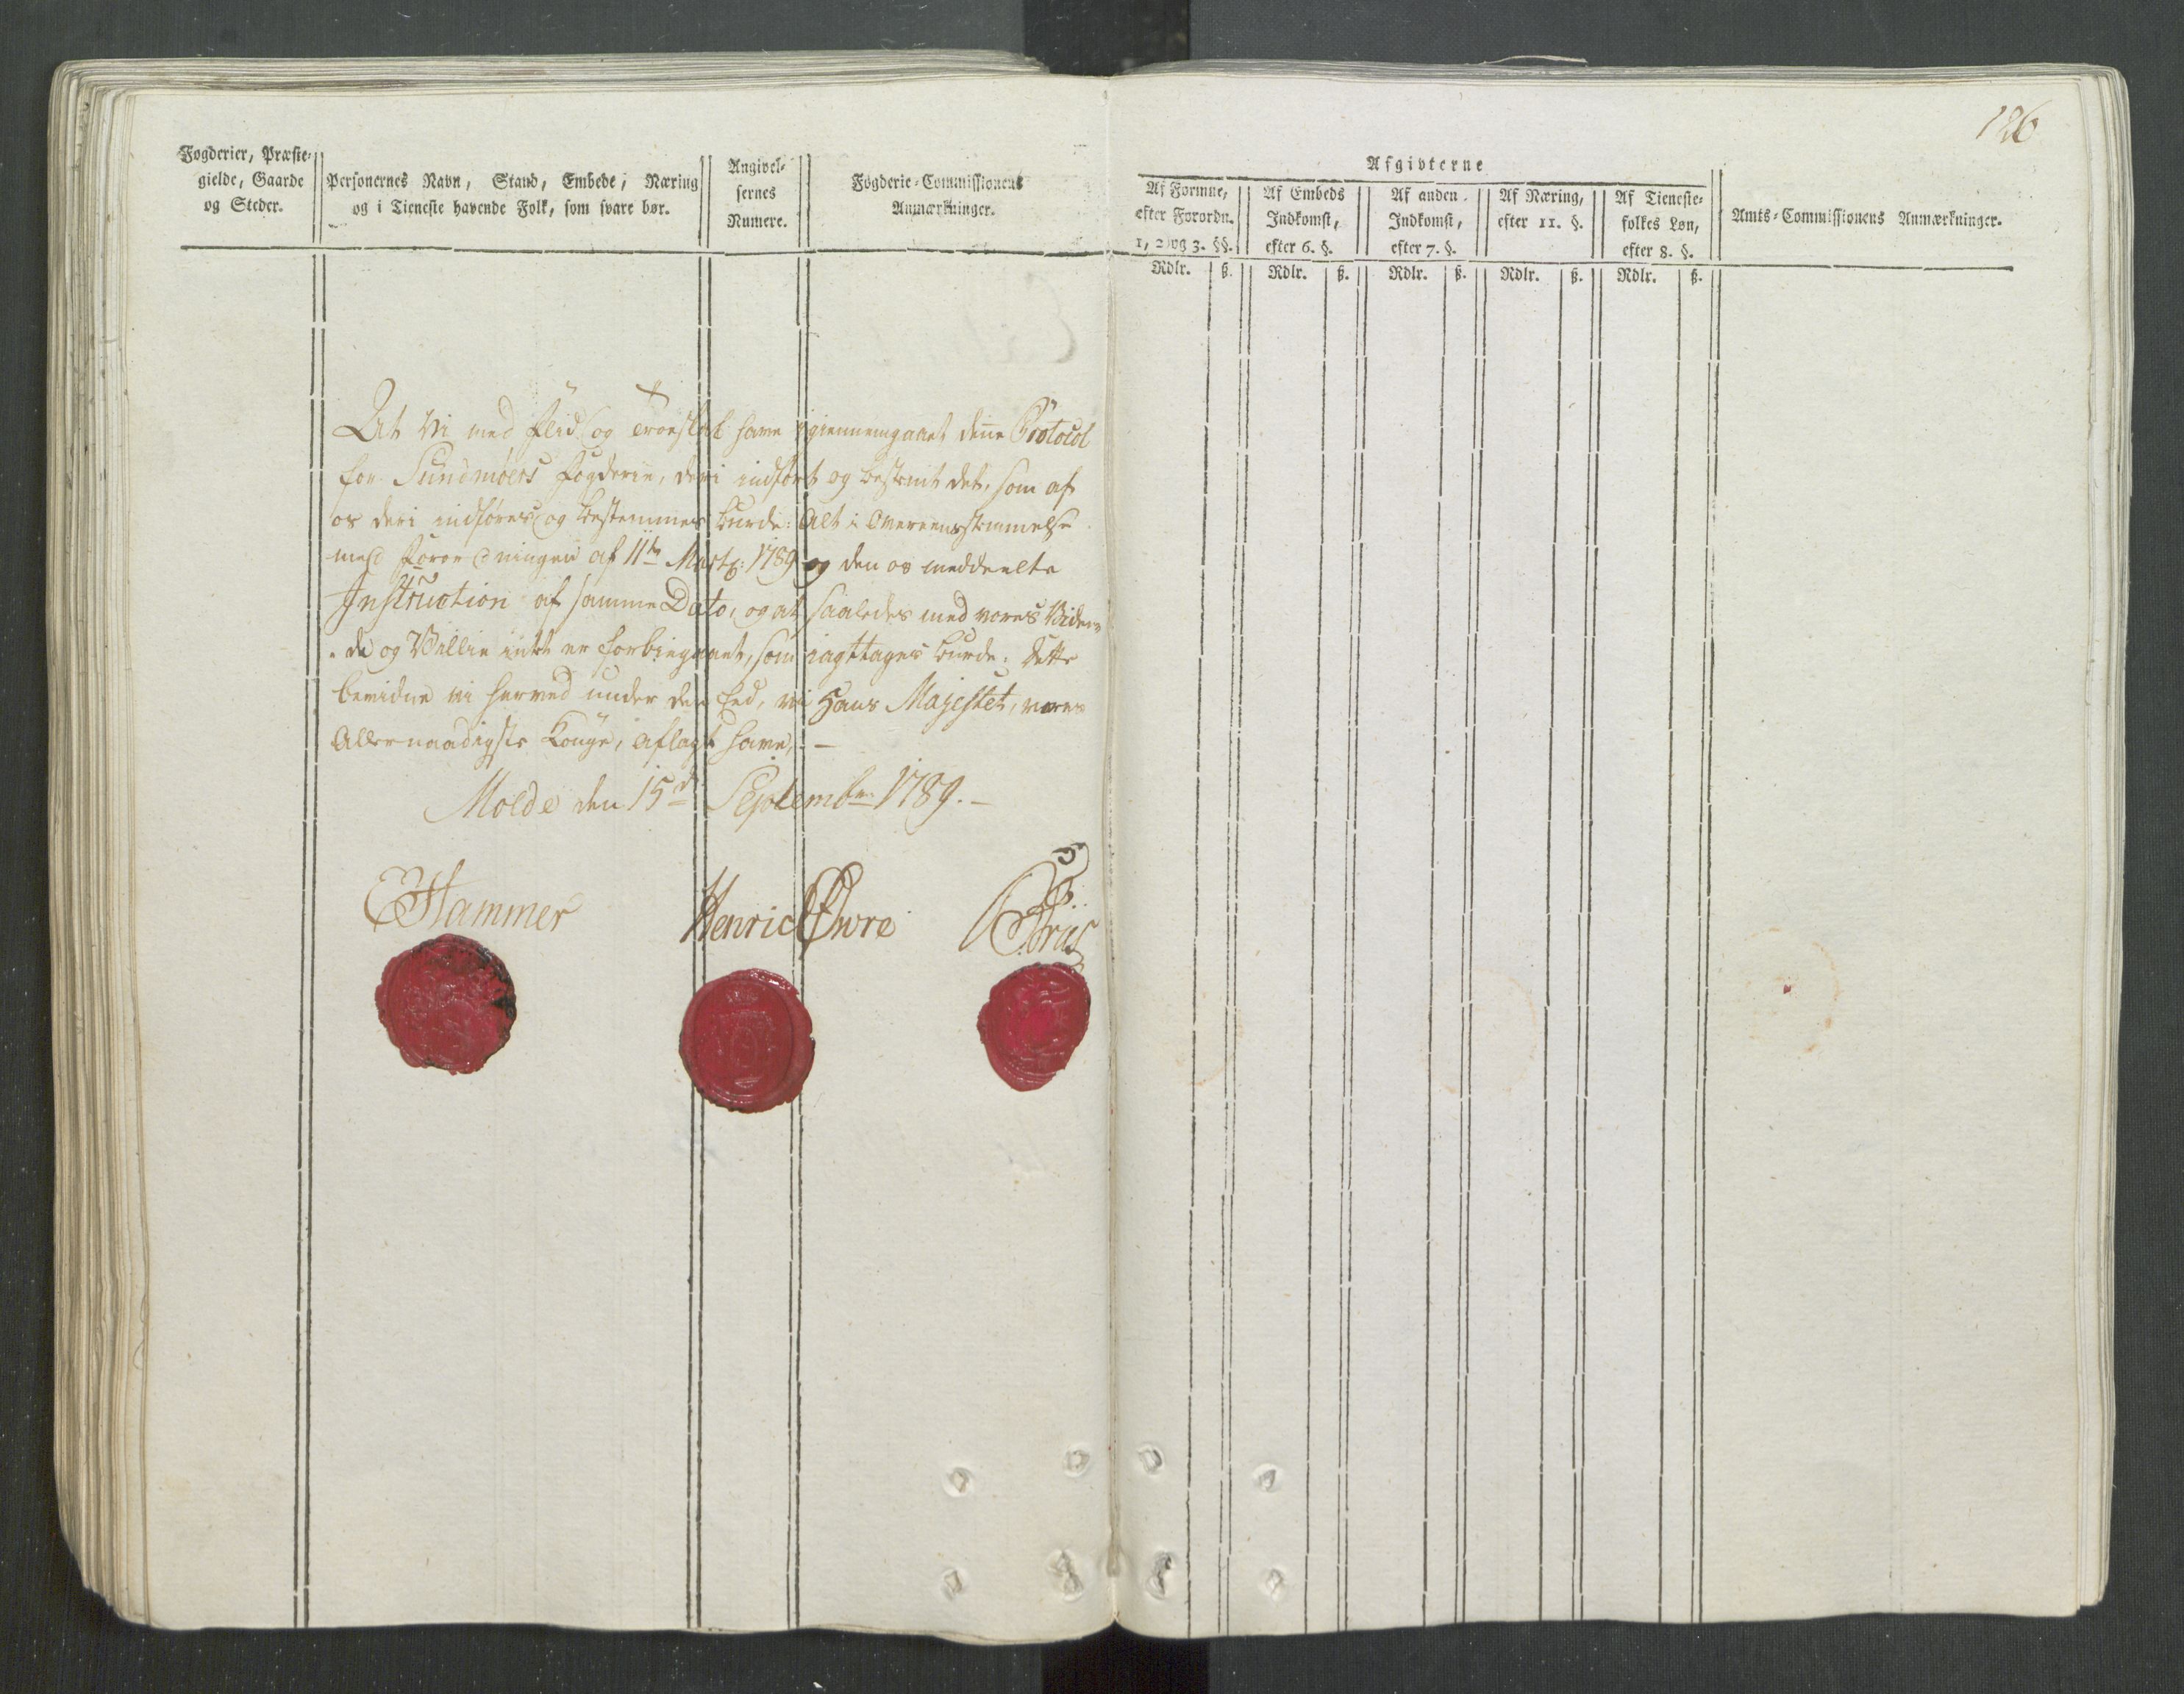 Fogderier, Præste-
gielde, Gaarde
og Steder.
Personernes Navn, Stand, Embede, Næring
og i Tieneste havende Folk, som svare bør.
Angivel-
sernes
Numere.
Fogderie-Commissionens
Anmærkninger.
At Vi med Flid og Troeskab have igiennemgaaet denne Protocol
for Sundmøers Fogderie, deri indført og bestemt det, som af
os deri indføres og bestemmes burde: Alt i Overeensstemmelse
med Forordningen af 11te Martz: 1789 og den os meddeelte
Instruction af samme Dato, og at saaledes med vores Viden-
de og Villie intet er forbiegaaet, som iagttages burde; dette
bevidne vi herved under den Eed, vi Hans Majestet, vores
Allernaadigste Konge, aflagt have, —
Molde den 15d September 1789. —
Hammer
Henric Øwre
186
Afgivterne
Af Formue,
efter Forordn.
1, 2 og 3. §§.
Af Embeds
Indkomst,
efter 6. §.
Af anden
Indkomst,
efter 7. §.
Af Næring,
efter 11. §.
Af Tieneste-
folkes Løn,
efter 8. §.
Amts-Commissionens Anmærkninger.
Rdlr. ß. Rdlr. ß. Rdlr. ß. Rdlr. ß. Rdlr. ß.